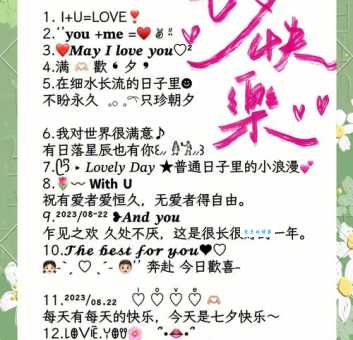 夕快樂
1. I+U=LOVE❣️
2.‘’you +me =❤️✌️‼
3.❤️May I love you♡²
4.满 🫶🏻 歡 ❛ 夕 ❜
5.在细水长流的日子里☻
不盼永久 ｡○｡◠只珍朝夕
6.我对世界很满意♪
有日落星辰也有你
7. ▸ Lovely Day ★普通日子里的小浪漫💕
8.🌷〰 With U
祝有爱者爱恒久，无爱者得自由。
9.²⁰²³/⁰⁸⁻²² ❥And you
乍见之欢 久处不厌，这是很长很 一年。
10.The best for you♥♡
👧🏻-` ♡ ´-👦🏻’’ 奔赴 今日歡喜-
11.²⁰²³/₀₈.₂₂ i o v e
♡♡♡♡🫶🏻
每天有每天的快乐，今天是七夕快乐～
12.LOVE.YOU🌸 “👄”